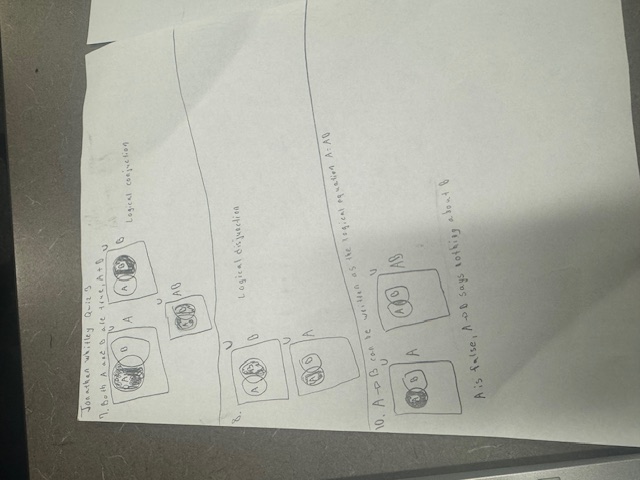 Jonathan Whitley Quiz 3
7. Both A and B are true, A + B
U
A B A
U
A B B
Logical conjuction
U
A B AB
8.
U
A B B
Logical disjunction
U
A B A
10. A → B can be written as the logical equation A = AB
U
A B A
U
A B AB
A is false, A → B says nothing about B